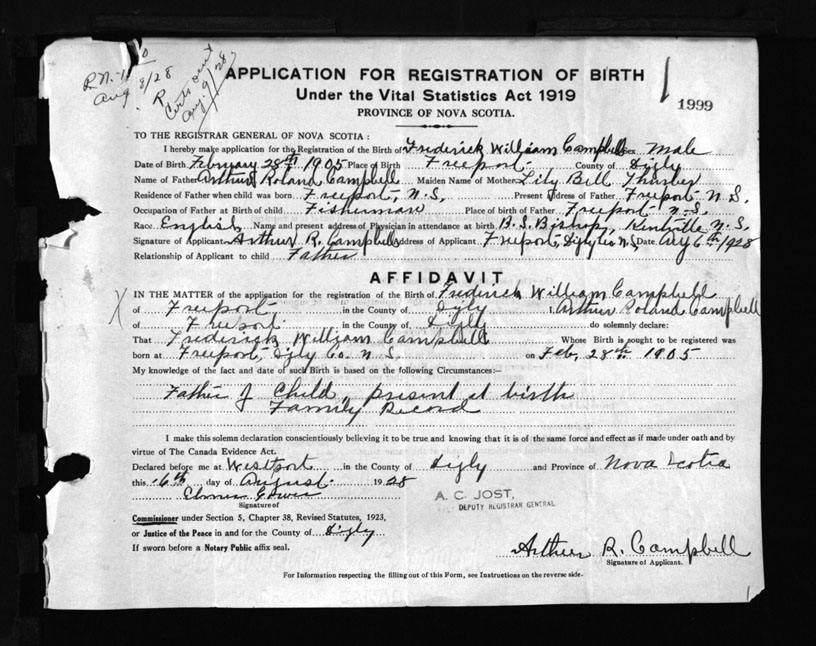 Aug 8/28
R
Certs sent
Aug. 9/28
APPLICATION FOR REGISTRATION OF BIRTH
Under the Vital Statistics Act 1919
PROVINCE OF NOVA SCOTIA.
1999
TO THE REGISTRAR GENERAL OF NOVA SCOTIA :
I hereby make application for the Registration of the Birth of Frederick William Campbell Sex Male
Date of Birth February 28th 1905 Place of Birth Freeport County of Digby
Name of Father Arthur Roland Campbell Maiden Name of Mother Lily Bell Thurber
Residence of Father when child was born Freeport, N.S. Present Address of Father Freeport N.S.
Occupation of Father at Birth of child Fisherman Place of birth of Father Freeport N.S.
Race English Name and present address of Physician in attendance at birth B.S. Bishop, Kentville N.S.
Signature of Applicant Arthur R. Campbell Address of Applicant Freeport, Digby Co N.S. Date Aug 6th 1928
Relationship of Applicant to child Father
AFFIDAVIT
IN THE MATTER of the application for the registration of the Birth of Frederick William Campbell
of Freeport in the County of Digby I, Arthur Roland Campbell
of Freeport in the County of Digby do solemnly declare:
That Frederick William Campbell Whose Birth is sought to be registered was
born at Freeport, Digby Co. N.S. on Feb, 28th 1905
My knowledge of the fact and date of such Birth is based on the following Circumstances:—
Father of Child, present at birth
Family Record
I make this solemn declaration conscientiously believing it to be true and knowing that it is of the same force and effect as if made under oath and by
virtue of The Canada Evidence Act.
Declared before me at Westport in the County of Digby and Province of Nova Scotia
this 6th day of August 1928
Signature of
A. C. JOST,
DEPUTY REGISTRAR GENERAL
Commissioner under Section 5, Chapter 38, Revised Statutes, 1923,
or Justice of the Peace in and for the County of Digby
If sworn before a Notary Public affix seal.
Arthur R. Campbell
Signature of Applicant.
For Information respecting the filling out of this Form, see Instructions on the reverse side.